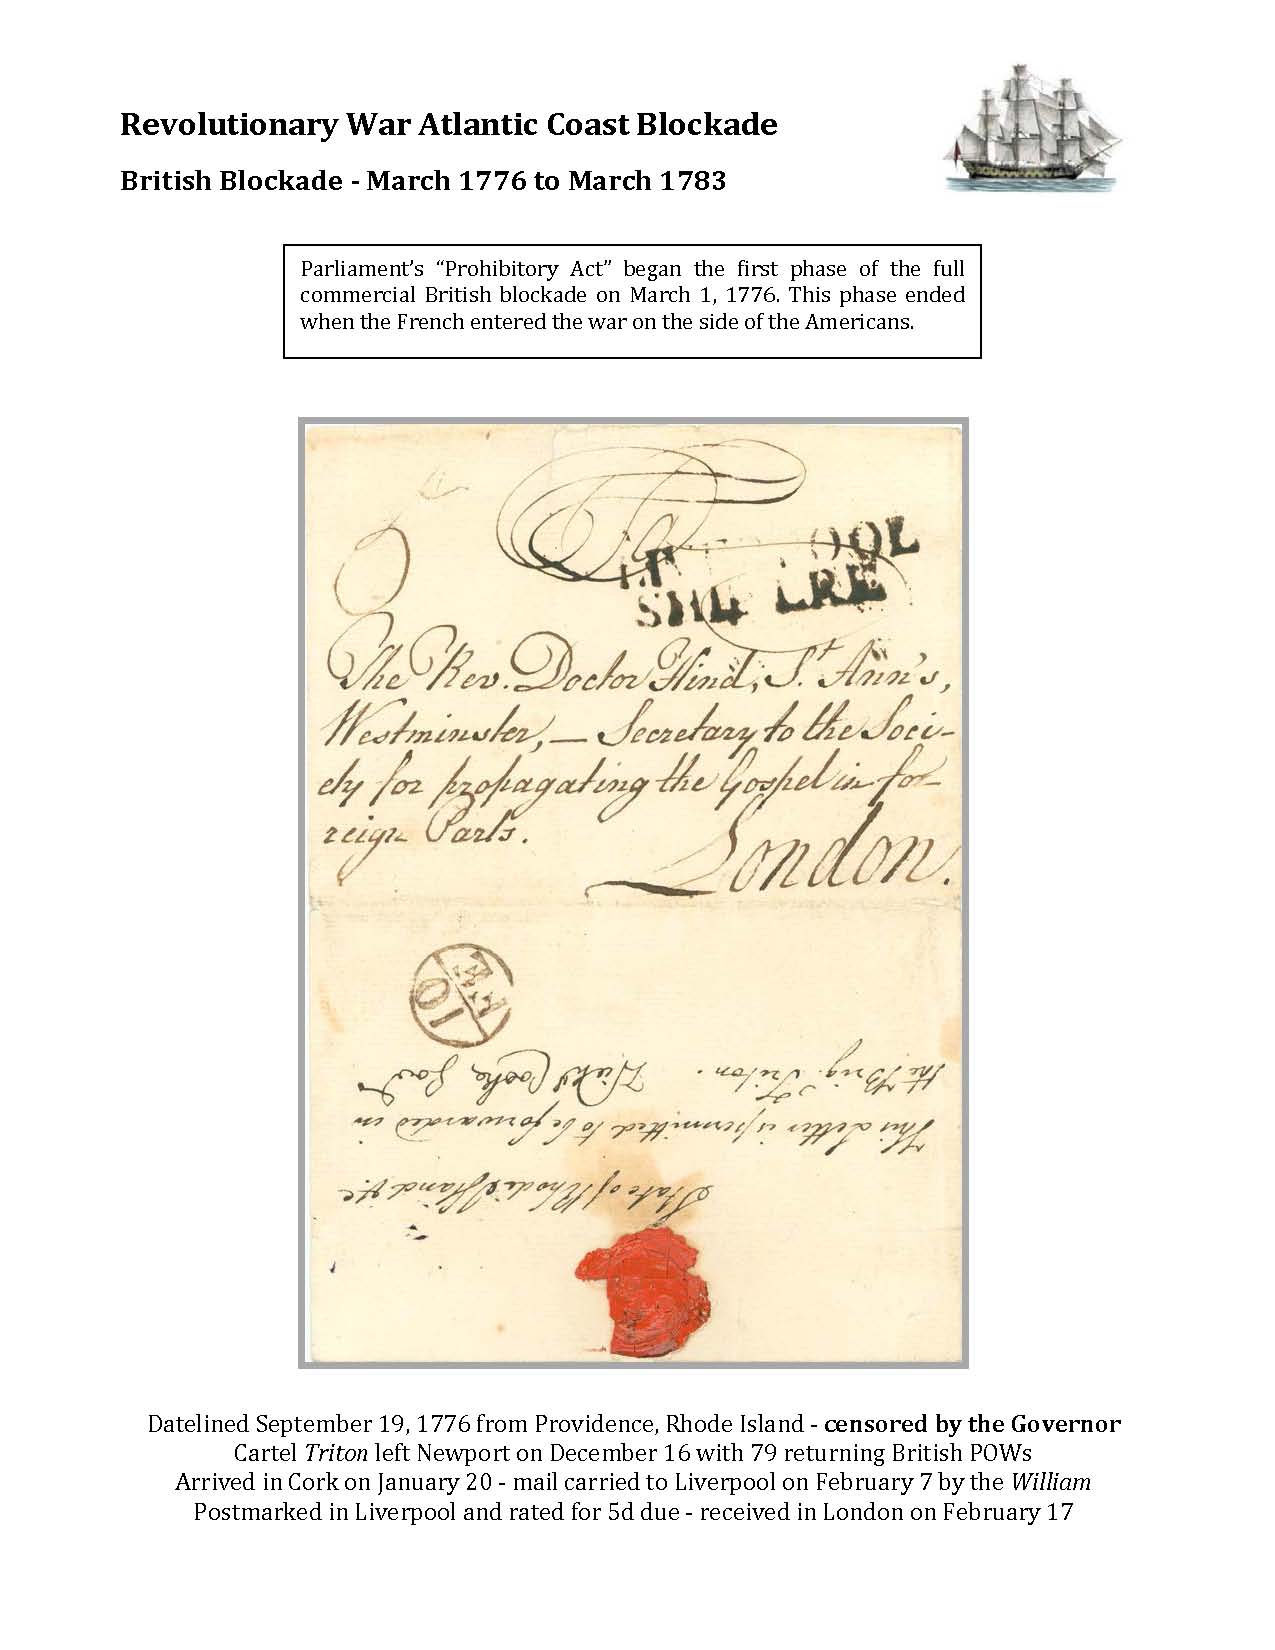 Revolutionary War Atlantic Coast Blockade
British Blockade - March 1776 to March 1783
Parliament's “Prohibitory Act” began the first phase of the full
commercial British blockade on March 1, 1776. This phase ended
when the French entered the war on the side of the Americans.
To
OOL
SHI LRE
The Rev. Doctor Hind, St. Ann's,
Westminster, — Secretary to the Soci-
ety for propagating the Gospel in fo-
reign Parts.
London.
10
State of Rhode Island &c
This Letter is permitted to be forwarded in
the Brig. Triton. Nichs Cooke, Govr
Datelined September 19, 1776 from Providence, Rhode Island - censored by the Governor
Cartel Triton left Newport on December 16 with 79 returning British POWs
Arrived in Cork on January 20 - mail carried to Liverpool on February 7 by the William
Postmarked in Liverpool and rated for 5d due - received in London on February 17